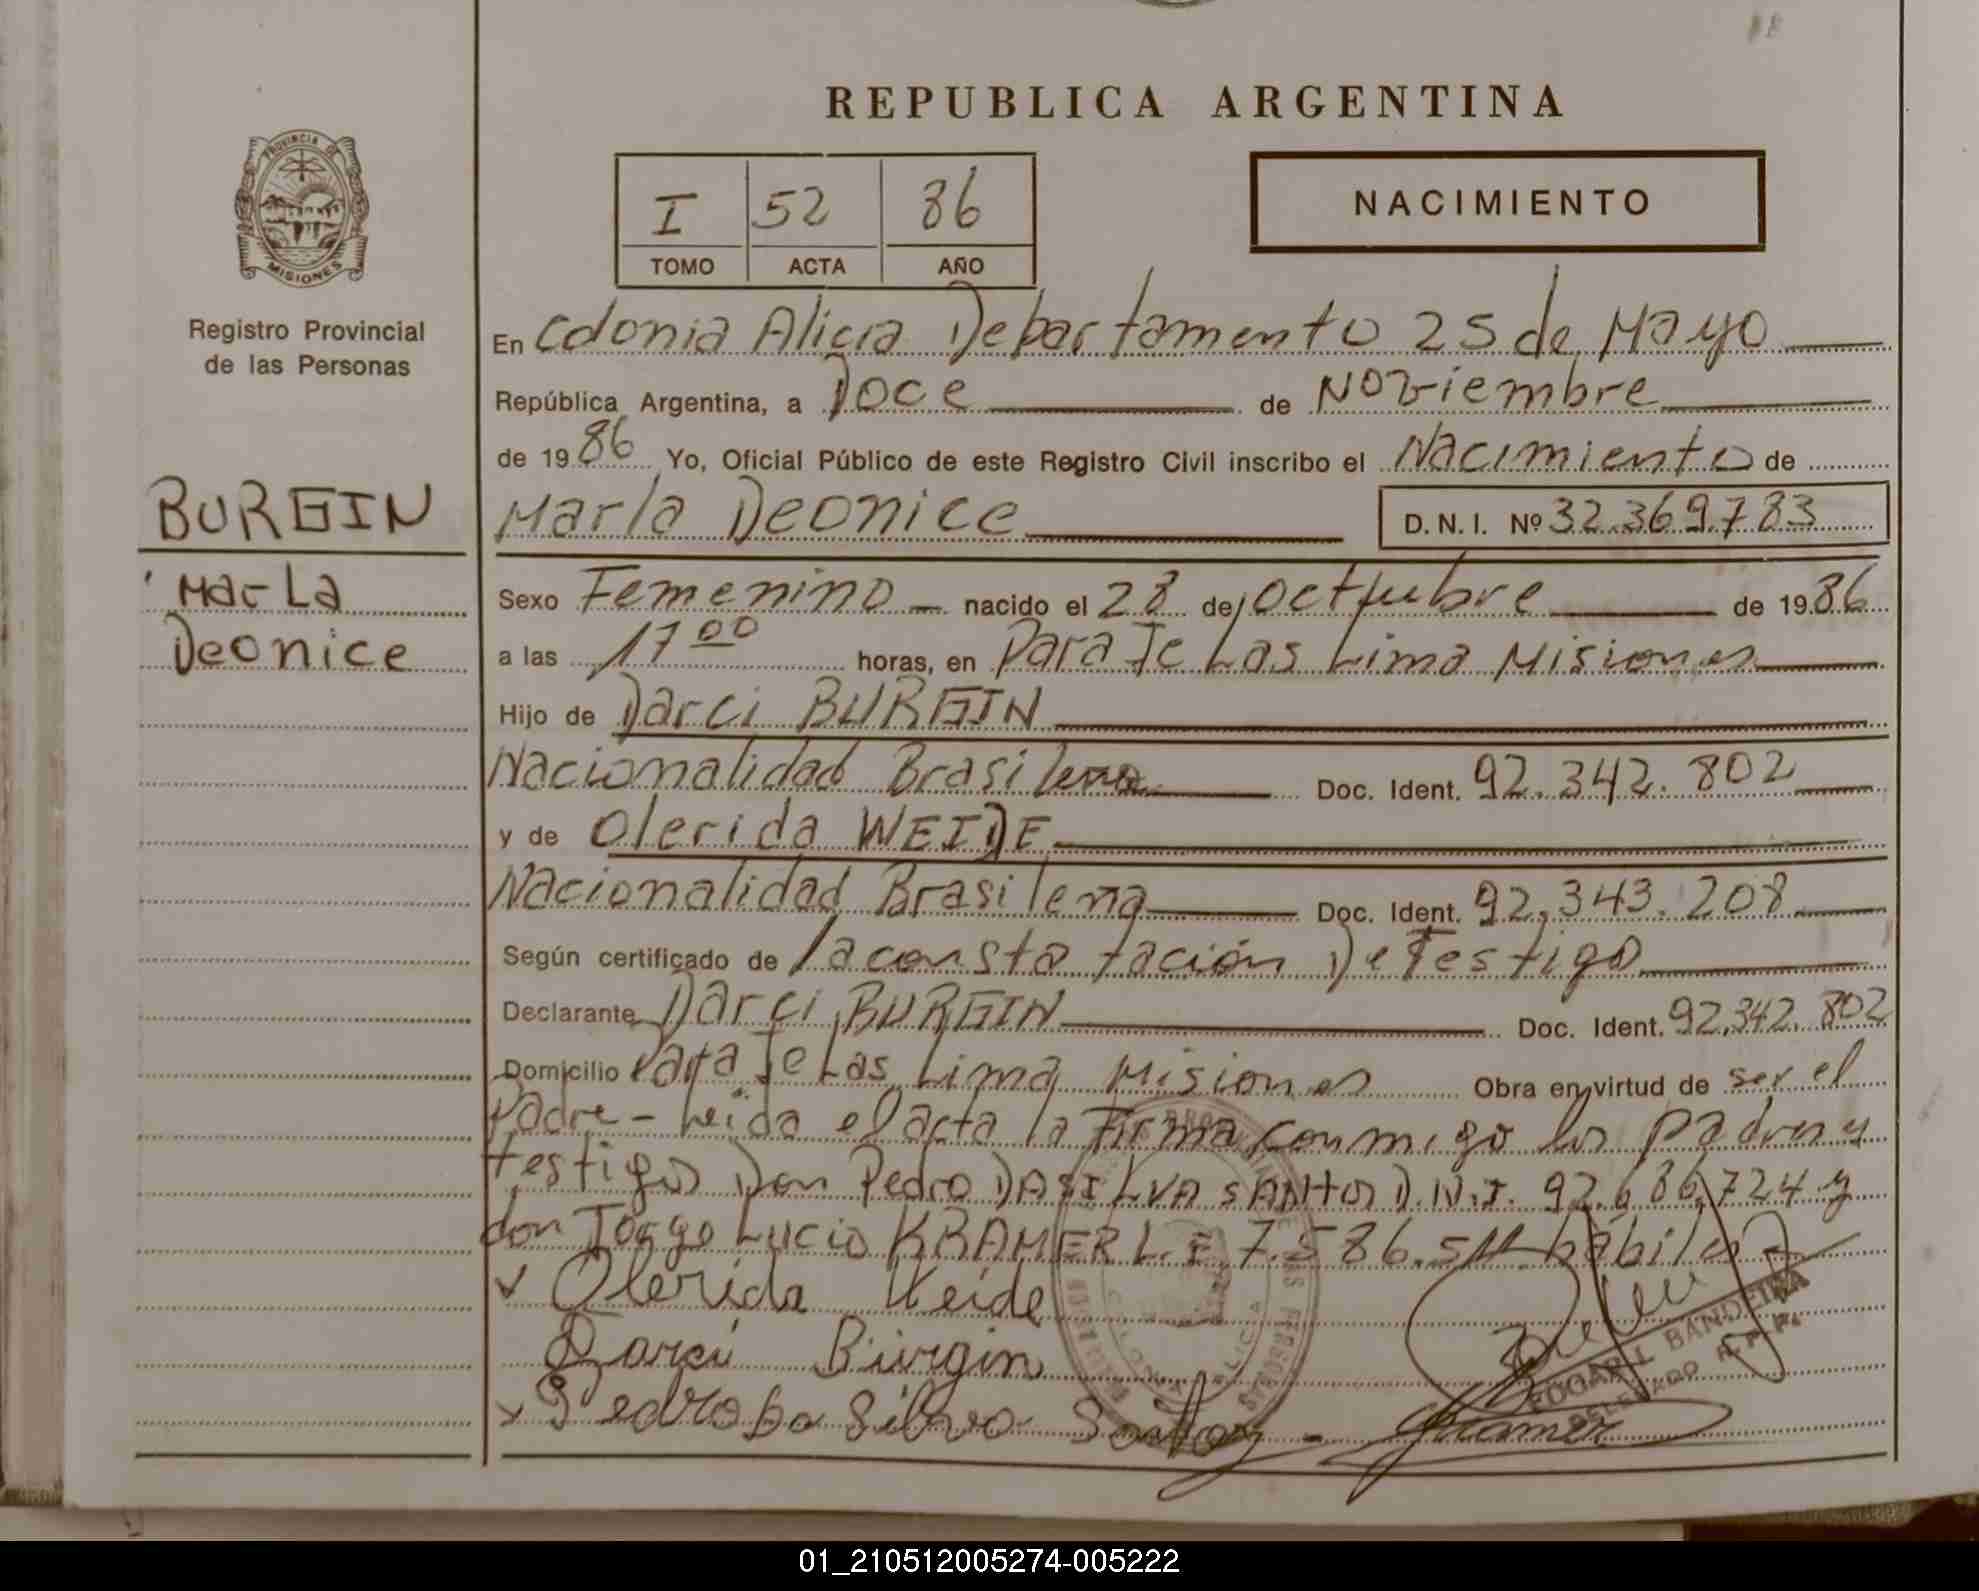 REPUBLICA ARGENTINA
PROVINCIA DE
MISIONES
Registro Provincial
de las Personas
I 52 86
TOMO ACTA AÑO
NACIMIENTO
En Colonia Alicia Departamento 25 de Mayo
República Argentina, a Doce de Noviembre
de 1986 Yo, Oficial Público de este Registro Civil inscribo el Nacimiento de
BURGIN
Marla Deonice D.N.I. Nº 32.369.783
Marla
Deonice
Sexo Femenino nacido el 28 de Octubre de 1986
a las 17 00 horas, en Paraje Las Lima Misiones
Hijo de Darci BURGIN
Nacionalidad Brasilena Doc. Ident. 92.342.802
y de Olerida WEIDE
Nacionalidad Brasilena Doc. Ident. 92.343.208
Según certificado de la constatación De Testigo
Declarante Darci BURGIN Doc. Ident. 92.342.802
Domicilio Paraje Las Lima Misiones Obra en virtud de ser el
Padre - Leida el acta la Firma conmigo los padres y
testigos Don Pedro DA SILVA SANTOS D.N.I. 92.686.724 y
don Jorge Lucio KRAMER L.E. 7.586.511 hábiles
Olerida Weide
Darci Bürgin
Pedro Da Silva Santos
EDGAR L BANDEIRA
DELEGADO R.P.P.
Kramer
01_210512005274-005222